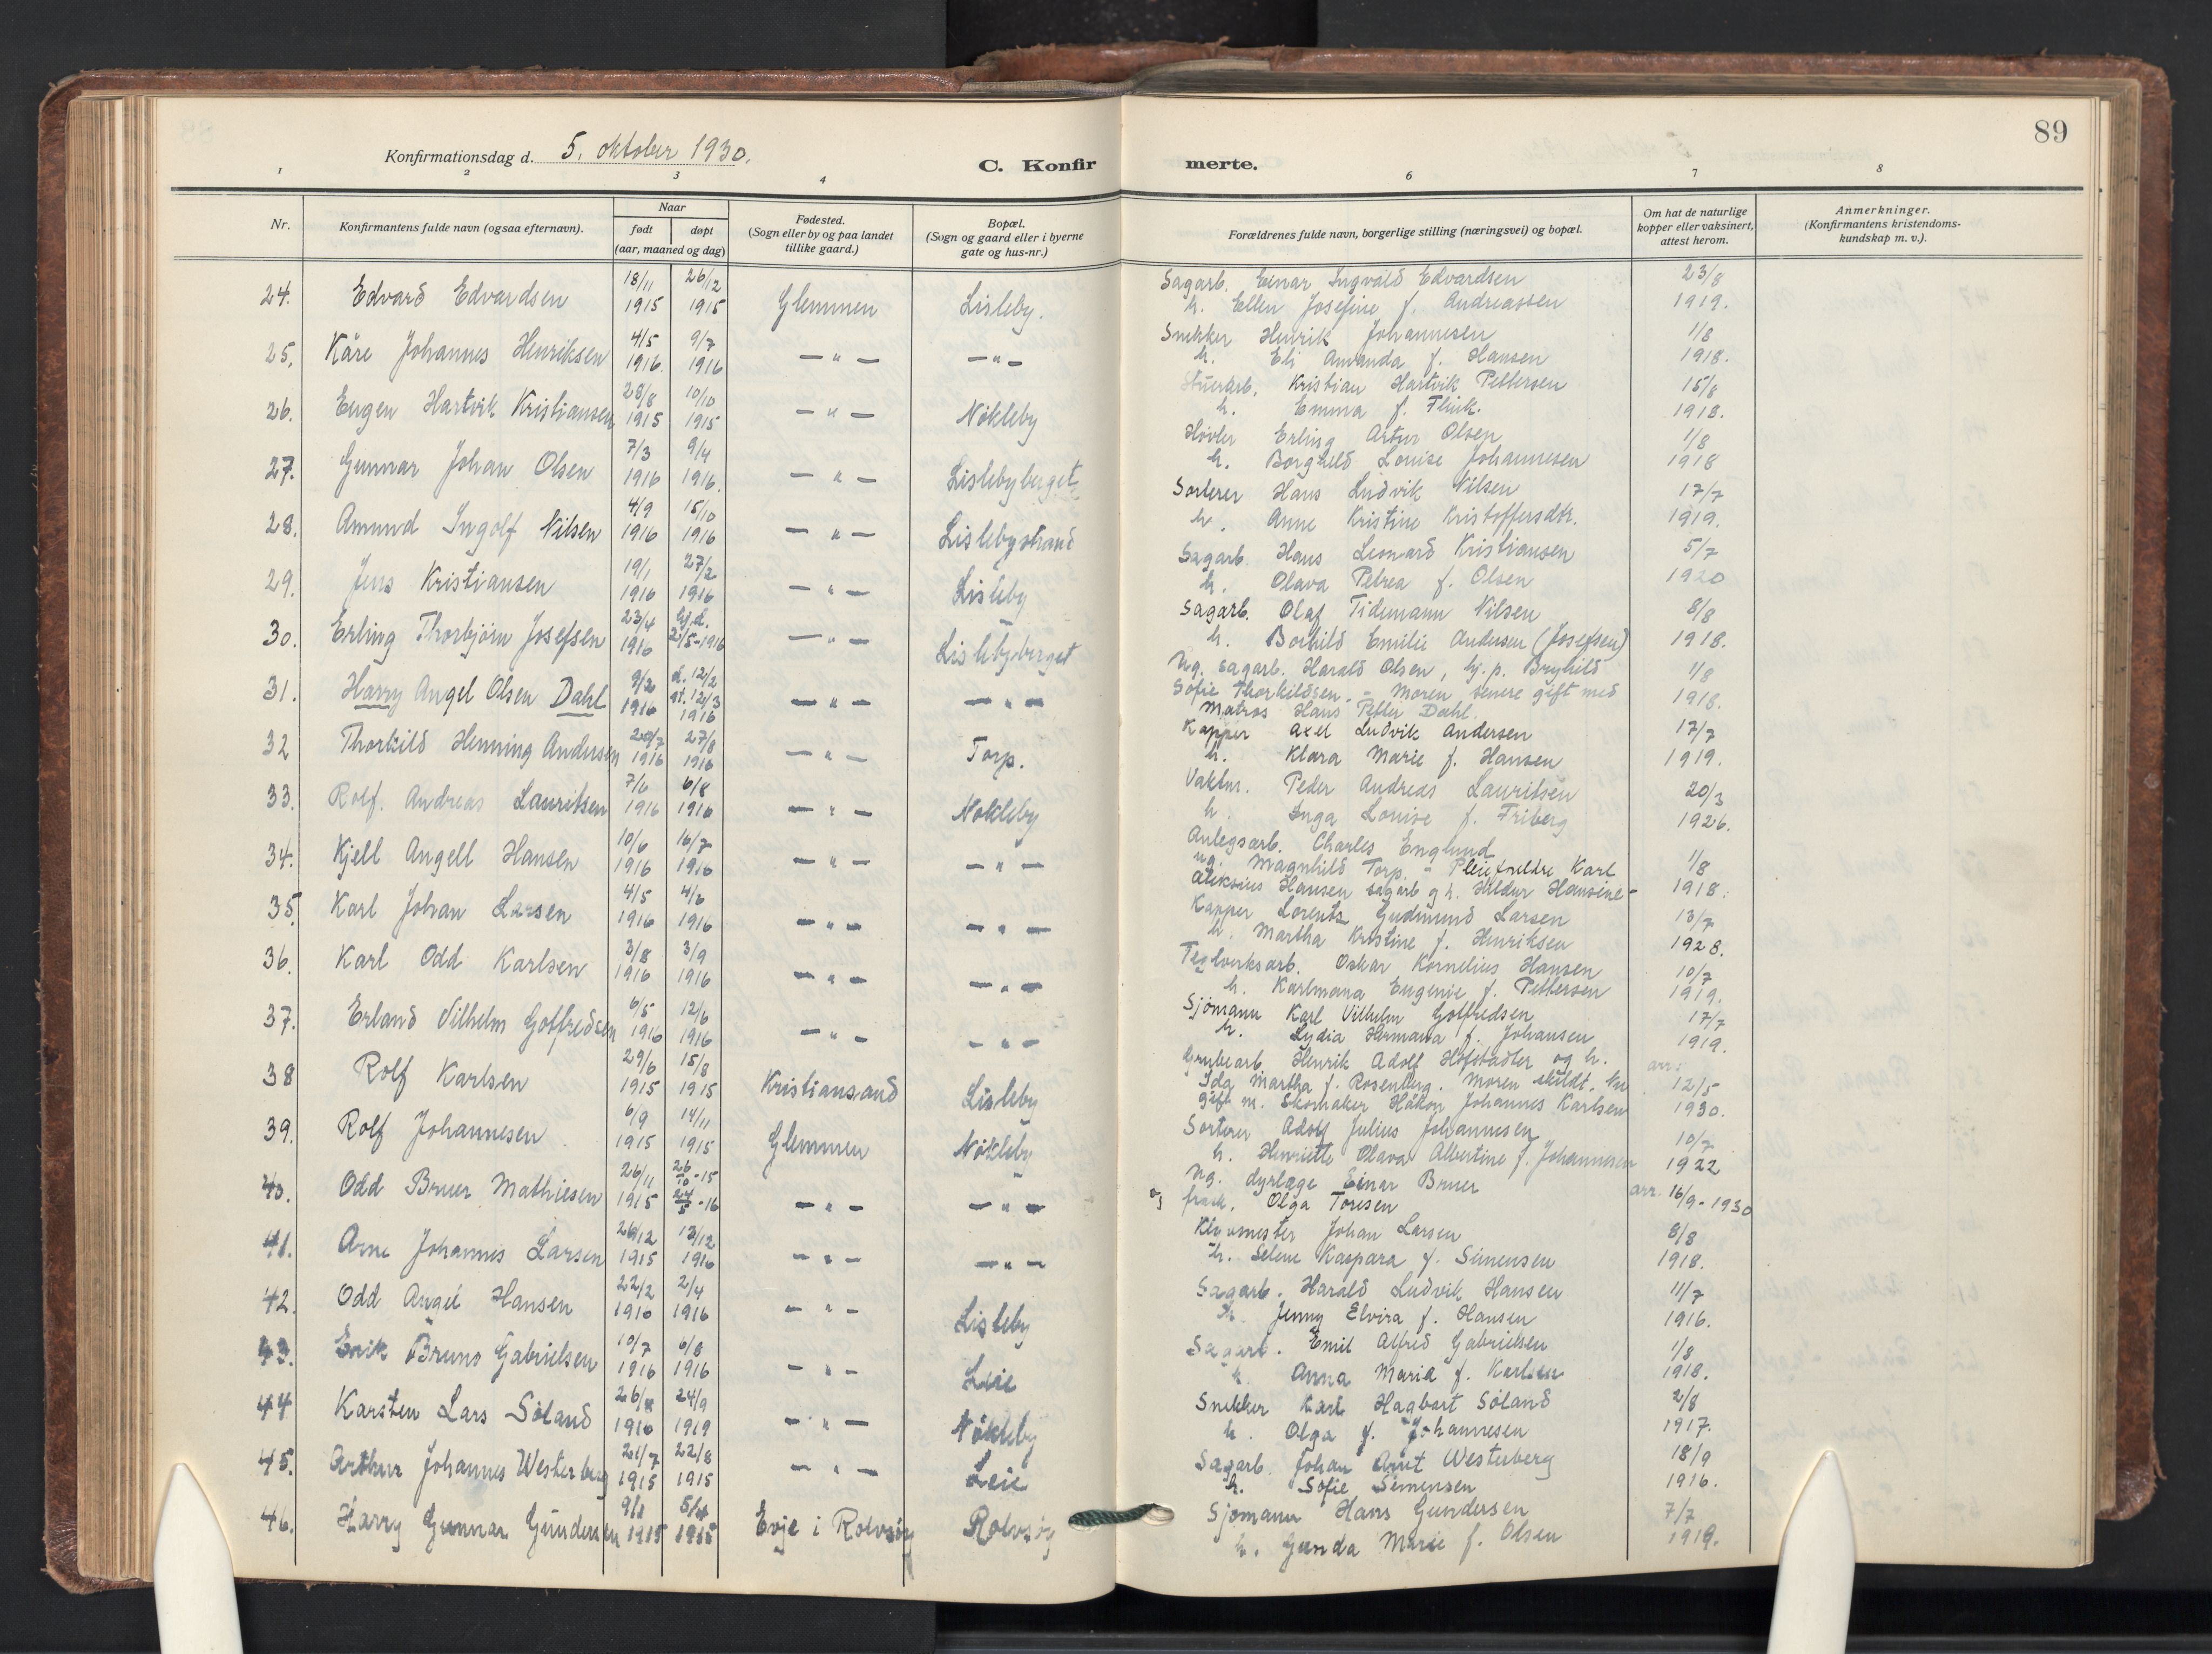 89
Konfirmationsdag d. 5. oktober 1930.
C. Konfirmerte.
1 2 3 4 6 7 8
Nr.
Konfirmantens fulde navn (ogsaa efternavn).
Naar
født døpt
(aar, maaned og dag)
Fødested.
(Sogn eller by og paa landet
tillike gaard.)
Bopæl.
(Sogn og gaard eller i byerne
gate og hus-nr.)
Forældrenes fulde navn, borgerlige stilling (næringsvei) og bopæl.
Om hat de naturlige
kopper eller vaksinert,
attest herom.
Anmerkninger.
(Konfirmantens kristendoms-
kundskap m. v.).
18/11 26/12 Sagarb. Einar Ingvald Edvardsen 23/8
24. Edvard Edvardsen 1915 1915 Glemmen Lisleby. h. Ellen Josefine f. Andreassen 1919.
4/5 9/7 Snekker Henrik Johannesen 1/8
25. Kåre Johannes Henriksen 1916. 1916 — " — — " — h. Eli Amanda f. Hansen 1918.
28/8 10/10 Stuerarb. Kristian Hartvik Pettersen 15/8
26. Eugen Hartvik Kristiansen 1915 1915 — " — Nökleby h. Emma f. Flink. 1918.
7/3 9/4 Høvler Erling Artur Olsen 1/8
27. Gunnar Johan Olsen 1916 1916. — " — Lislebyberget h. Borghild Louise Johannesen 1918
4/9 15/10 Sorterer Hans Ludvik Nilsen 17/7
28. Amund Ingolf Nilsen 1916 1916 — " — Lislebystrand h. Anne Kristine Kristoffersdtr. 1919.
19/1 27/2 Sagarb. Hans Leonard Kristiansen 5/7
29. Jens Kristiansen 1916 1916 — " — Lisleby h. Olava Petrea f. Olsen 1920
23/4 hj.d. Sagarb. Olaf Tidemann Nilsen 8/8
30. Erling Thorbjörn Josefsen 1916 21/5-1916 — " — Lislebyberget h. Borhild Emilie Andersen (Josefsen) 1918.
9/2 d. 12/2 Ug. sagarb. Harald Olsen, hj. p. Bryhild 1/8
31. Harry Angel Olsen Dahl 1916 st. 12/3 1916 — " — — " — Sofie Thorkildsen. - Moren senere gift med 1918.
Matros Hans Petter Dahl.
20/7 27/8 Kapper Axel Ludvik Andersen 17/7
32 Thorkild Henning Andersen 1916 1916 — " — Torp. h. Klara Marie f. Hansen 1919.
7/6 6/8 Vaktm. Peder Andreas Lauritsen 20/3
33. Rolf. Andreas Lauritsen 1916 1916 — " — Nökleby h. Inga Louise f. Friberg 1926.
10/6 16/7 Anlegsarb. Charles Englund
34. Kjell Angell Hansen 1916 1916 — " — — " — ug. Magnhild Torp. - Pleieforeldre Karl 1/8
Aleksius Hansen sagarb og h. Hildur Hansine - 1918.
4/5 4/6 Kapper Lorents Gudmund Larsen 13/7
35. Karl Johan Larsen 1916 1916 — " — — " — h. Martha Kristine f. Henriksen 1928.
3/8 3/9 Teglverksarb. Oskar Kornelius Hansen 10/7
36. Karl Odd Karlsen 1916 1916 — " — — " — h. Karlmana Eugenie f. Pettersen 1919.
6/5 12/6 Sjömann Karl Vilhelm Gotfredsen 17/7
37. Erland Vilhelm Gotfredsen 1916 1916 — " — — " — h. Lydia Hermana f. Johansen 1919.
29/6 15/8 Grubearb. Henrik Adolf Hofstadter og h. arr:
38 Rolf Karlsen 1915 1915 Kristiansand Lisleby Ida Martha f. Rosenberg. Moren skildt. Nu 12/5
gift m. Skomaker Håkon Johannes Karlsen 1930.
6/9 14/11 Sorterer Adolf Julius Johannesen 10/7
39. Rolf Johannesen 1915 1915 Glemmen Nökleby h. Henriette Olava Albertine f. Johannesen 1922
26/11 26/10-15 Ug. dyrlæge Einar Bruer
40. Odd Bruer Mathiesen 1915 24/5-16 — " — — " — og frask. Olga Toresen arr. 16/9-1930
26/12 13/12 Johan Larsen 8/8
41. Arne Johannes Larsen 1915 1916 — " — — " — h. Selene Kaspara f. Simensen 1918.
22/2 2/4 Sagarb. Harald Ludvik Hansen 11/7
42. Odd Angel Hansen 1910 1916 — " — Lisleby h. Jenny Elvira f. Hansen 1916.
10/7 6/8 Sagarb. Emil Alfred Gabrielsen 1/8
43. Erik Bruno Gabrielsen 1916 1916 — " — Leie h. Anna Maria f. Karlsen 1918.
26/8 24/9 Snekker Karl Hagbart Söland 2/8
44 Karsten Lars Söland 1916 1919 — " — Nökleby h. Olga f. Johannesen 1917.
21/7 22/8 Sagarb. Johan Arnt Westerberg 18/9
45. Arthur Johannes Westerberg 1915 1915 — " — Leie h. Sofie Simensen 1916.
9/1 5/4 Sjömann Hans Gundersen 7/7
46. Harry Gunnar Gundersen 1915 1915 Evje i Rolvsöy Rolvsöy h. Gunda Marie f. Olsen 1919.